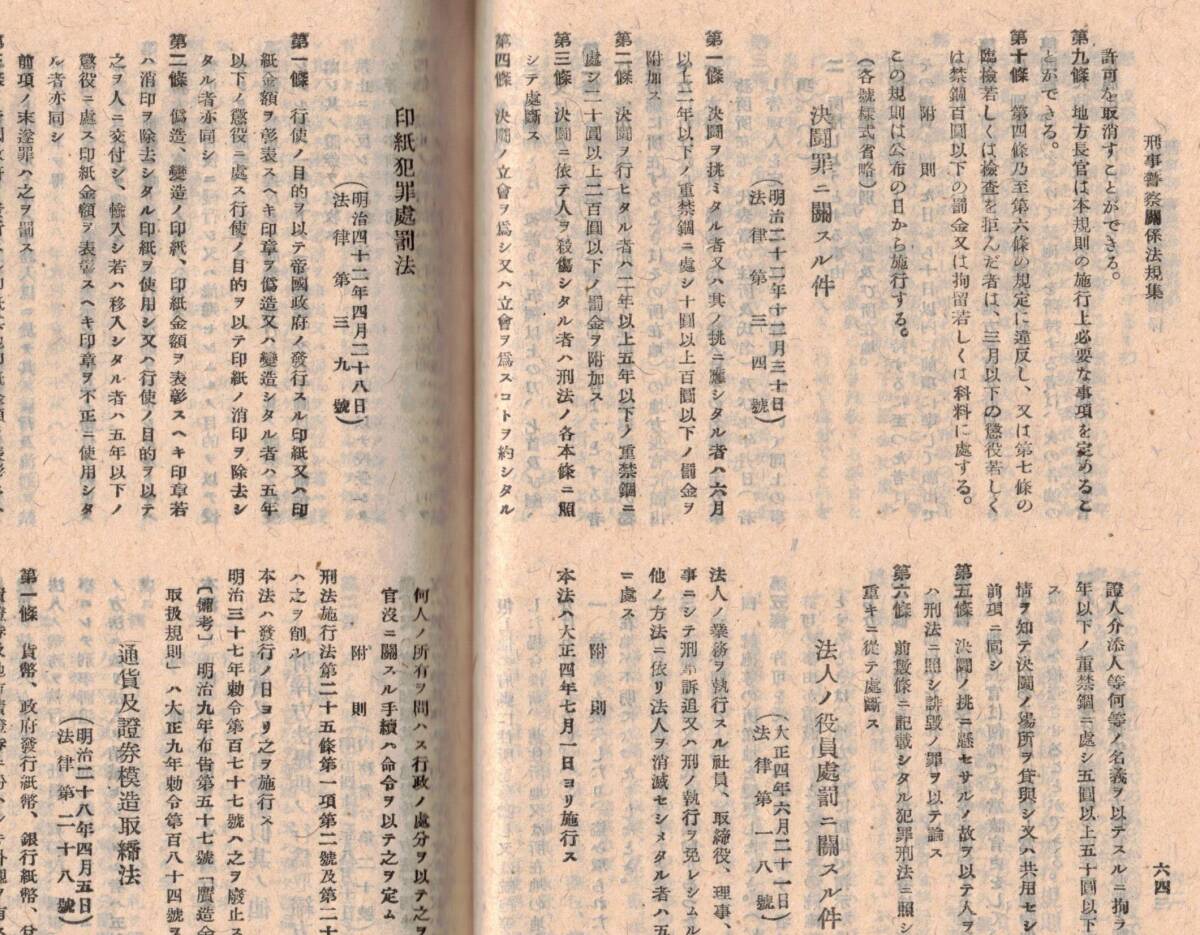 刑事警察關係法規集
許可を取消すことができる。
第九條　地方長官は本規則の施行上必要な事項を定めるこ
とができる。
第十條　第四條乃至第六條の規定に違反し、又は第七條の
臨檢若しくは檢査を拒んだ者は、三月以下の懲役若しく
は禁錮百圓以下の罰金又は拘留若しくは科料に處する。
附　則
この規則は公布の日から施行する。
（各號樣式省略）
決闘罪ニ關スル件
（明治二十二年十二月三十日）
（法律第三四號）
第一條　決闘ヲ挑ミタル者又ハ其ノ挑ニ應シタル者ハ六月
以上二年以下ノ重禁錮ニ處シ十圓以上百圓以下ノ罰金ヲ
附加ス
第二條　決闘ヲ行ヒタル者ハ二年以上五年以下ノ重禁錮ニ
處シ二十圓以上二百圓以下ノ罰金ヲ附加ス
第三條　決闘ニ依テ人ヲ殺傷シタル者ハ刑法ノ各本條ニ照
シテ處斷ス
第四條　決闘ノ立會ヲ爲シ又ハ立會ヲ爲スコトヲ約シタル
六四
證人介添人等何等ノ名義ヲ以テスルニ拘ヲ
年以下ノ重禁錮ニ處シ五圓以上五十圓以下
ス
情ヲ知テ決闘ノ場所ヲ貸與シ又ハ共用セシ
前項ニ同シ
第五條　決闘ノ挑ニ應セサルノ故ヲ以テ人ヲ
ハ刑法ニ照シ誹毀ノ罪ヲ以テ論ス
第六條　前數條ニ記載シタル犯罪刑法ニ照シ
重キニ從テ處斷ス
法人ノ役員處罰ニ關スル件
（大正四年六月二十一日）
（法律第一八號）
法人ノ業務ヲ執行スル社員、取締役、理事、
事ニシテ刑事訴追又ハ刑ノ執行ヲ免レシムル
他ノ方法ニ依リ法人ヲ消滅セシメタル者ハ五
ニ處ス
附　則
本法ハ大正四年七月一日ヨリ施行ス
印紙犯罪處罰法
（明治四十二年四月二十八日）
（法律第三九號）
第一條　行使ノ目的ヲ以テ帝國政府ノ發行スル印紙又ハ印
紙金額ヲ彰表スヘキ印章ヲ僞造又ハ變造シタル者ハ五年
以下ノ懲役ニ處ス行使ノ目的ヲ以テ印紙ノ消印ヲ除去シ
タル者亦同シ
第二條　僞造、變造ノ印紙、印紙金額ヲ表彰スヘキ印章若
ハ消印ヲ除去シタル印紙ヲ使用シ又ハ行使ノ目的ヲ以テ
之ヲ人ニ交付シ、輸入シ若ハ移入シタル者ハ五年以下ノ
懲役ニ處ス印紙金額ヲ表彰スヘキ印章ヲ不正ニ使用シタ
ル者亦同シ
前項ノ未遂罪ハ之ヲ罰ス
何人ノ所有ヲ問ハス行政ノ處分ヲ以テ之ヲ
官沒ニ關スル手續ハ命令ヲ以テ之ヲ定ム
附　則
刑法施行法第二十五條第一項第二號及第二十
ハ之ヲ削ル
本法ハ發行ノ日ヨリ之ヲ施行ス
明治三十七年勅令第百七十七號ハ之ヲ廢止ス
〔備考〕　明治九年布告第五十七號「贋造金
取扱規則」ハ大正九年勅令第百八十四號ヲ
通貨及證券模造取締法
（明治二十八年四月五日）
（法律第二十八號）
第一條　貨幣、政府發行紙幣、銀行紙幣、兌